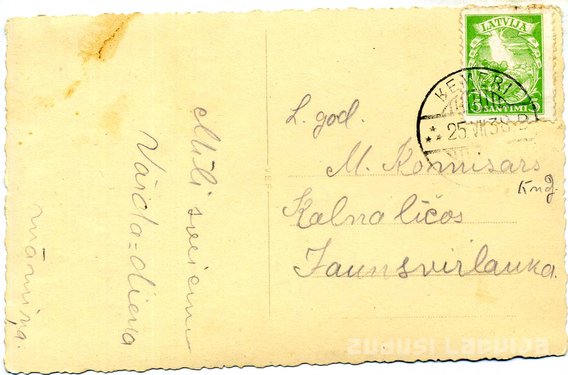 LATVIJA
5 SANTIMI
ĶEMERI
25 VII 38 B
L. god.
M. Komisārs
kng.
Kalnalīčos
Jaunsvirlauka.
Mīļi sveicam
Vārda-dienā
māmiņa.
ZUDUSI LATVIJA